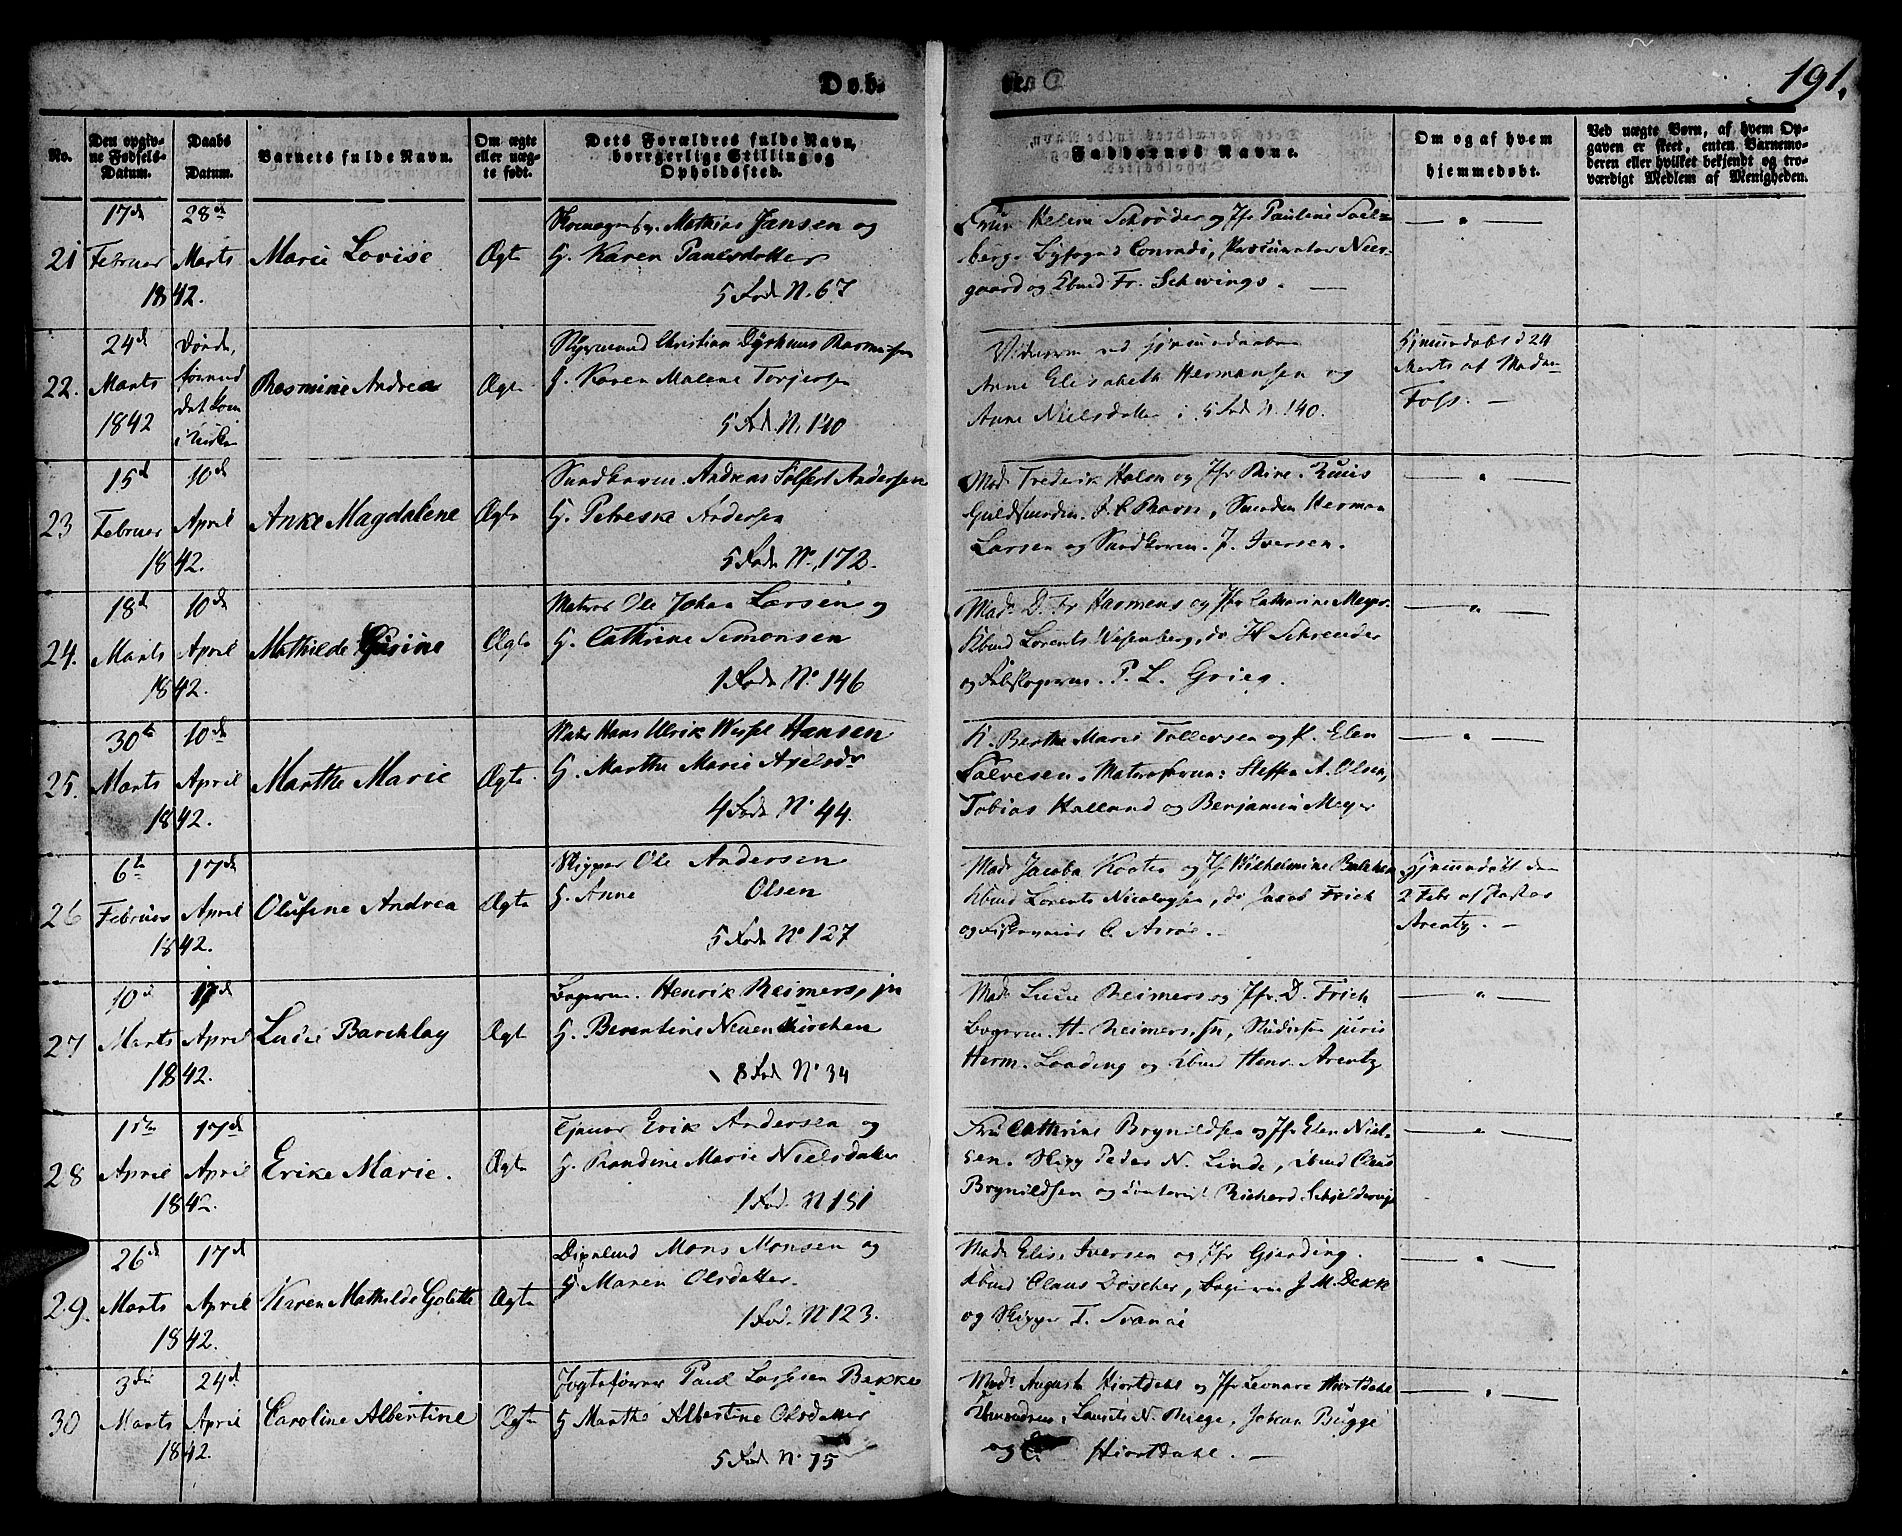 Døb-
te.
191.
No.
Den opgiv-
ne Fødsels-
Datum.
Daabs
Datum.
Barnets fulde Navn.
Om ægte
eller uæg-
te født.
Dets Forældres fulde Navn,
borgerlige Stilling og
Opholdssted.
Faddernes Navne.
Om og af hvem
hjemmedøbt.
Ved uægte Børn, af hvem Op-
gaven er skeet, enten Barnemo-
deren eller hvilket bekjendt og tro-
værdigt Medlem af Menigheden.
21
17de
Februar
28de
Marts
1842.
Marie Lovise
Ægte
Mathias Jansen og
H. Karen Paulsdatter
5 Rode N. 67
Fru Helene Schrøder og Jfr Pauline Soel-
berg. Byfoged Conradi, Procurator Niis-
gaard og Kbmd Fr. Schwings.
22.
24de
Marts
1842
Døde,
førend
det kom
i Kirken
Rasmine Andrea
Ægte
Styrmand Christian Dyrhuus Rasmussen
H. Karen Malene Torjersen
5 Rod. N. 140
Vidnerne ved Hjemmedaaben
Anne Elisabeth Hermansen og
Anne Nielsdatter i 5 Rod N. 140.
Hjemmedøbt d 24
Marts af Madam
Foss.
23
15d
Februar
10d
April
1842.
Anke Magdalene
Ægte
Andreas Tolfert Andersen
H. Petreske Andersen
5 Rode No. 172.
Mad. Frederik Holm og Jfr Rine Kuus
Guldsmeden. J. C. Ravn, Smeden Herman
Larsen og J. Iversen.
24.
18d
Marts
10de
April
1842.
Mathilde Gurine
Ægte
Matros Ole Johan Larsen og
H. Cathrine Simonsen
1 Rode No. 146
Mad. D. Fr Harmens og Jfr Catharine Meyer.
Kbmd Lorents Wesenberg, do H Schreuder
og P. L. Grieg.
25.
30te
Marts
10de
April
1842.
Marthe Marie
Ægte
Hans Ulrik Wessel Hansen
H. Marthe Marie Axelsdr
4 Rode No 44.
K. Berthe Marie Tollevsen og P. Elen
Salvesen. Matroserne: Steffen A. Olsen,
Tobias Halland og Benjamin Meyer
26
6te
Februar
17de
April
1842.
Olufine Andrea
Ægte
Skipper Ole Andersen
H. Anne Olsen
5 Rode No 127
Mad. Jacoba Koater og Jfr Wilhelmine Balchen
Kbmd Lorents Nicolaysen, do Jacob Frich
og C. Asrøe.
Hjemmedøbt den
2 Febr af Pastor
Arentz.
27
10d
Marts
17d
April
1842.
Lucie Barchlay
Ægte
Bagerm. Henrik Reimers, jn
H. Berentine Neuenkirchen
8 Rod No 34
Mad. Lucie Reimers og Jfr. D. Frich
Bagerm. H. Reimers, sn, Studiosus juris
Herm. Laading og Kbmd Henr. Arentz
28
1ste
April
17de
April
1842.
Erike Marie.
Ægte
Tjener Erik Andersen og
H. Randine Marie Nielsdatter
1 Rod. N 151
Fru Cathrine Brynildsen og Jfr Elen Niel-
sen. Skipp Peder N. Linde, Kbmd Claus
Brynildsen og Contorist Richard Schjelderup
29.
26de
Marts
17de
April
1842.
Karen Mathilde Golette
Ægte
Mons Monsen og
H Maren Olsdatter.
1 Rod. N 123.
Mad. Elise Iversen og Jfr Gjerding.
Kbmd Claus Doscher, J M. Dekke
og Skipper T. Svanøe
30
3die
Marts
24de
April
1842.
Caroline Albertine
Ægte
Jægtefører Paul Lassesen Bekke
H Marthe Albertine Olsdatter
5 Rod No. 75
Mad. Augusta Hiortdahl og Jfr Leonare Hiortdahl
Laurits N. Riege, Johan Bugge
og C. Hiortdahl.